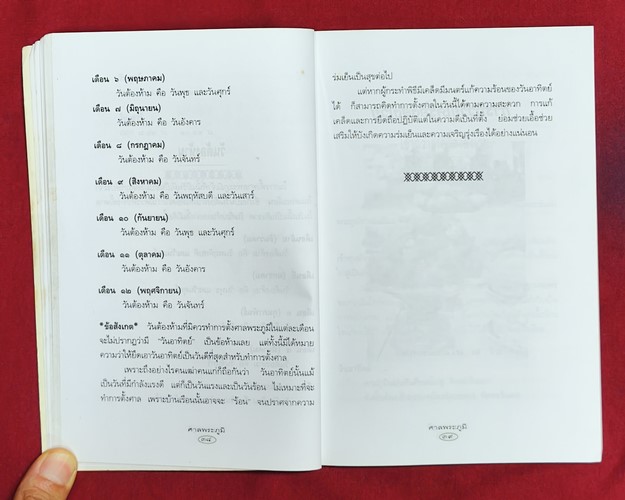 เดือน ๖ (พฤษภาคม)
วันต้องห้าม คือ วันพุธ และวันศุกร์
เดือน ๗ (มิถุนายน)
วันต้องห้าม คือ วันอังคาร
เดือน ๘ (กรกฎาคม)
วันต้องห้าม คือ วันจันทร์
เดือน ๙ (สิงหาคม)
วันต้องห้าม คือ วันพฤหัสบดี และวันเสาร์
เดือน ๑๐ (กันยายน)
วันต้องห้าม คือ วันพุธ และวันศุกร์
เดือน ๑๑ (ตุลาคม)
วันต้องห้าม คือ วันอังคาร
เดือน ๑๒ (พฤศจิกายน)
วันต้องห้าม คือ วันจันทร์
*ข้อสังเกต* วันต้องห้ามที่มิควรทำการตั้งศาลพระภูมิในแต่ละเดือน
จะไม่ปรากฏว่ามี "วันอาทิตย์" เป็นข้อห้ามเลย แต่ทั้งนี้มิได้หมาย
ความว่าให้ยึดเอาวันอาทิตย์เป็นวันดีที่สุดสำหรับทำการตั้งศาล
เพราะถึงอย่างไรคนเฒ่าคนแก่ก็ถือกันว่า วันอาทิตย์นั้นแม้
เป็นวันที่มีกำลังแรงดี แต่ก็เป็นวันแรงและเป็นวันร้อน ไม่เหมาะที่จะ
ทำการตั้งศาล เพราะบ้านเรือนนั้นอาจจะ "ร้อน" จนปราศจากความ
ศาลพระภูมิ
๓๘
ร่มเย็นเป็นสุขต่อไป
แต่หากผู้กระทำพิธีมีเคล็ดมีมนตร์แก้ความร้อนของวันอาทิตย์
ได้ ก็สามารถคิดทำการตั้งศาลในวันนี้ได้ตามความสะดวก การแก้
เคล็ดและการยึดถือปฏิบัติแต่ในความดีเป็นที่ตั้ง ย่อมช่วยเอื้อช่วย
เสริมให้บังเกิดความร่มเย็นและความเจริญรุ่งเรืองได้อย่างแน่นอน
ศาลพระภูมิ
๓๙